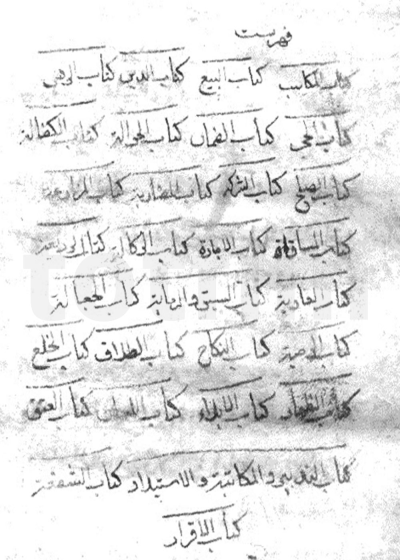 فهرست
كتاب المكاسب كتاب البيع كتاب الدين كتاب الرهن
كتاب الحجر كتاب الضمان كتاب الحوالة كتاب الكفالة
كتاب الصلح كتاب الشركة كتاب المضاربة كتاب المزارعة
كتاب المساقاة كتاب الاجارة كتاب الوكالة كتاب الوديعة
كتاب العارية كتاب السبق و الرماية كتاب الجعالة
كتاب الوصية كتاب النكاح كتاب الطلاق كتاب الخلع
كتاب الظهار كتاب الايلاء كتاب اللعان كتاب العتق
كتاب التدبير و المكاتبة و الاستيلاد كتاب الشفعة
كتاب الاقرار